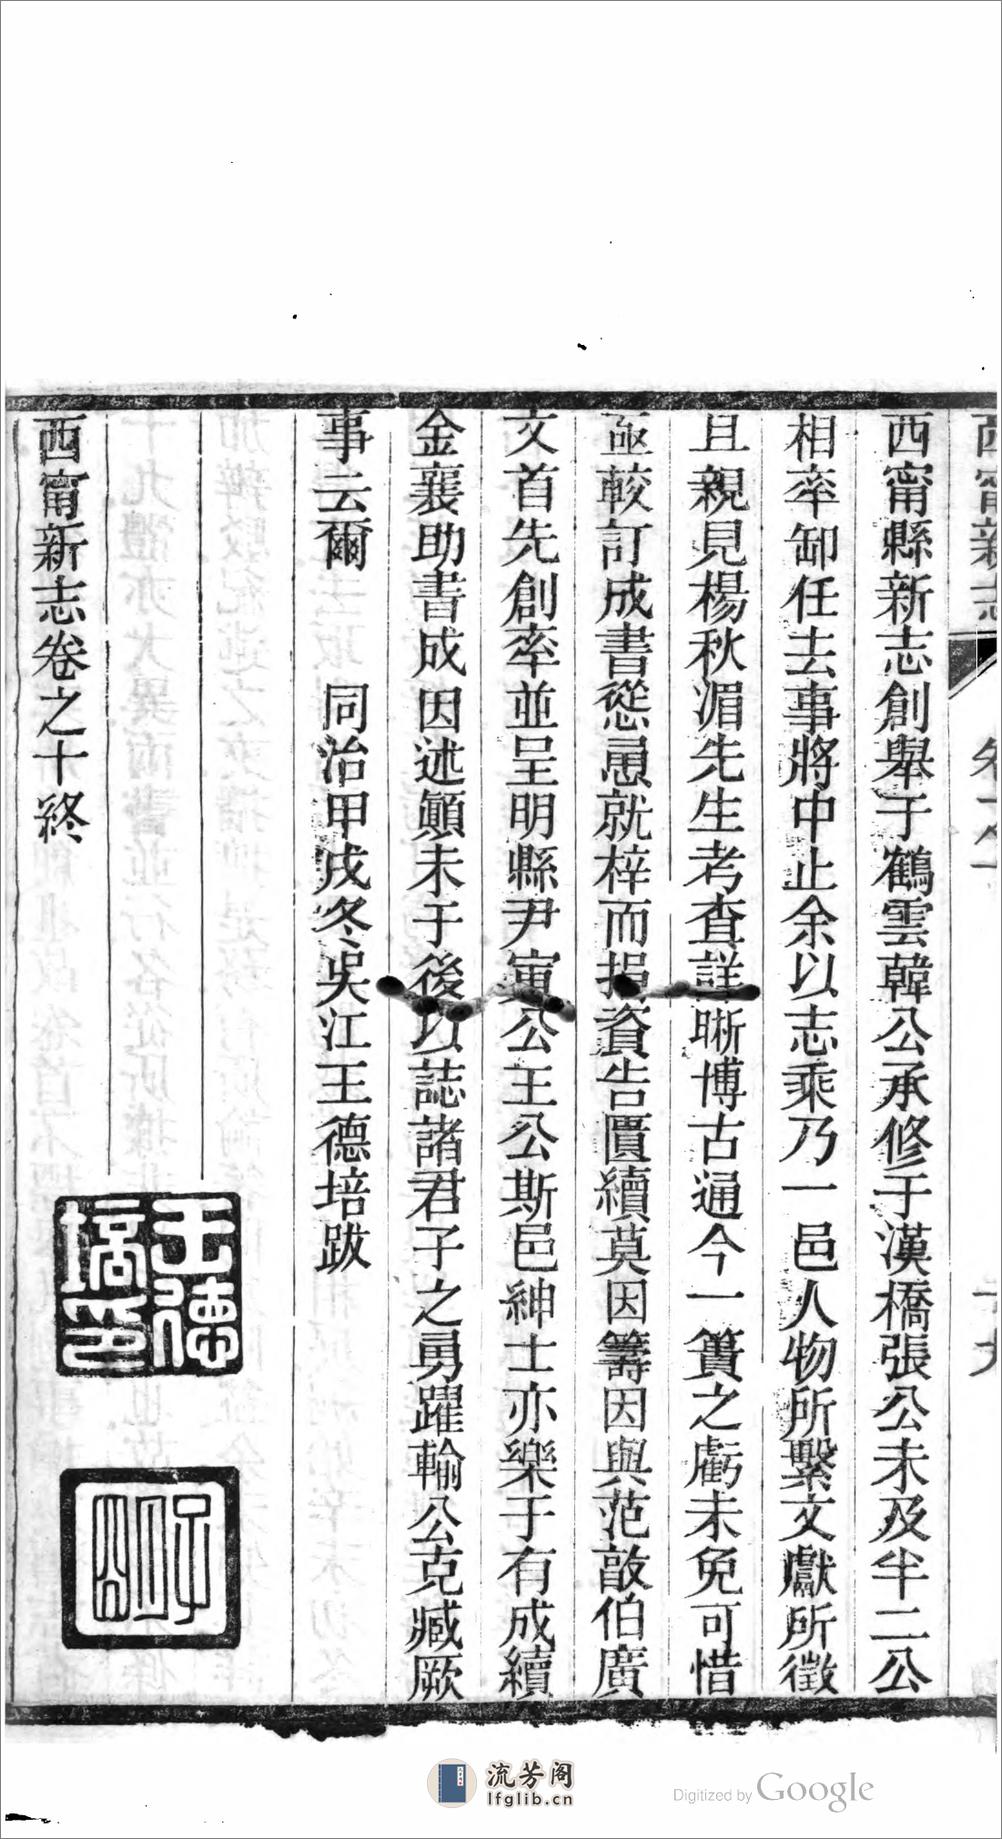 西甯新志
西甯縣新志創舉于鶴雲韓公承修于漢橋張公未及半二公
相率卸任去事將中止余以志乘乃一邑人物所繫文獻所徵
且親見楊秋湄先生考查詳晰博古通今一簣之虧未免可惜
亟較訂成書慫恿就梓而捐資告匱續莫因籌因與范敔伯廣
文首先創率並呈明縣尹寅公王公斯邑紳士亦樂于有成續
金襄助書成因述顚末于後以誌諸君子之勇躍輸公克臧厥
事云爾 同治甲戌冬吳江王德培跋
西甯新志卷之十終
王德
培印
流芳阁
lfglib.cn
Digitized by Google